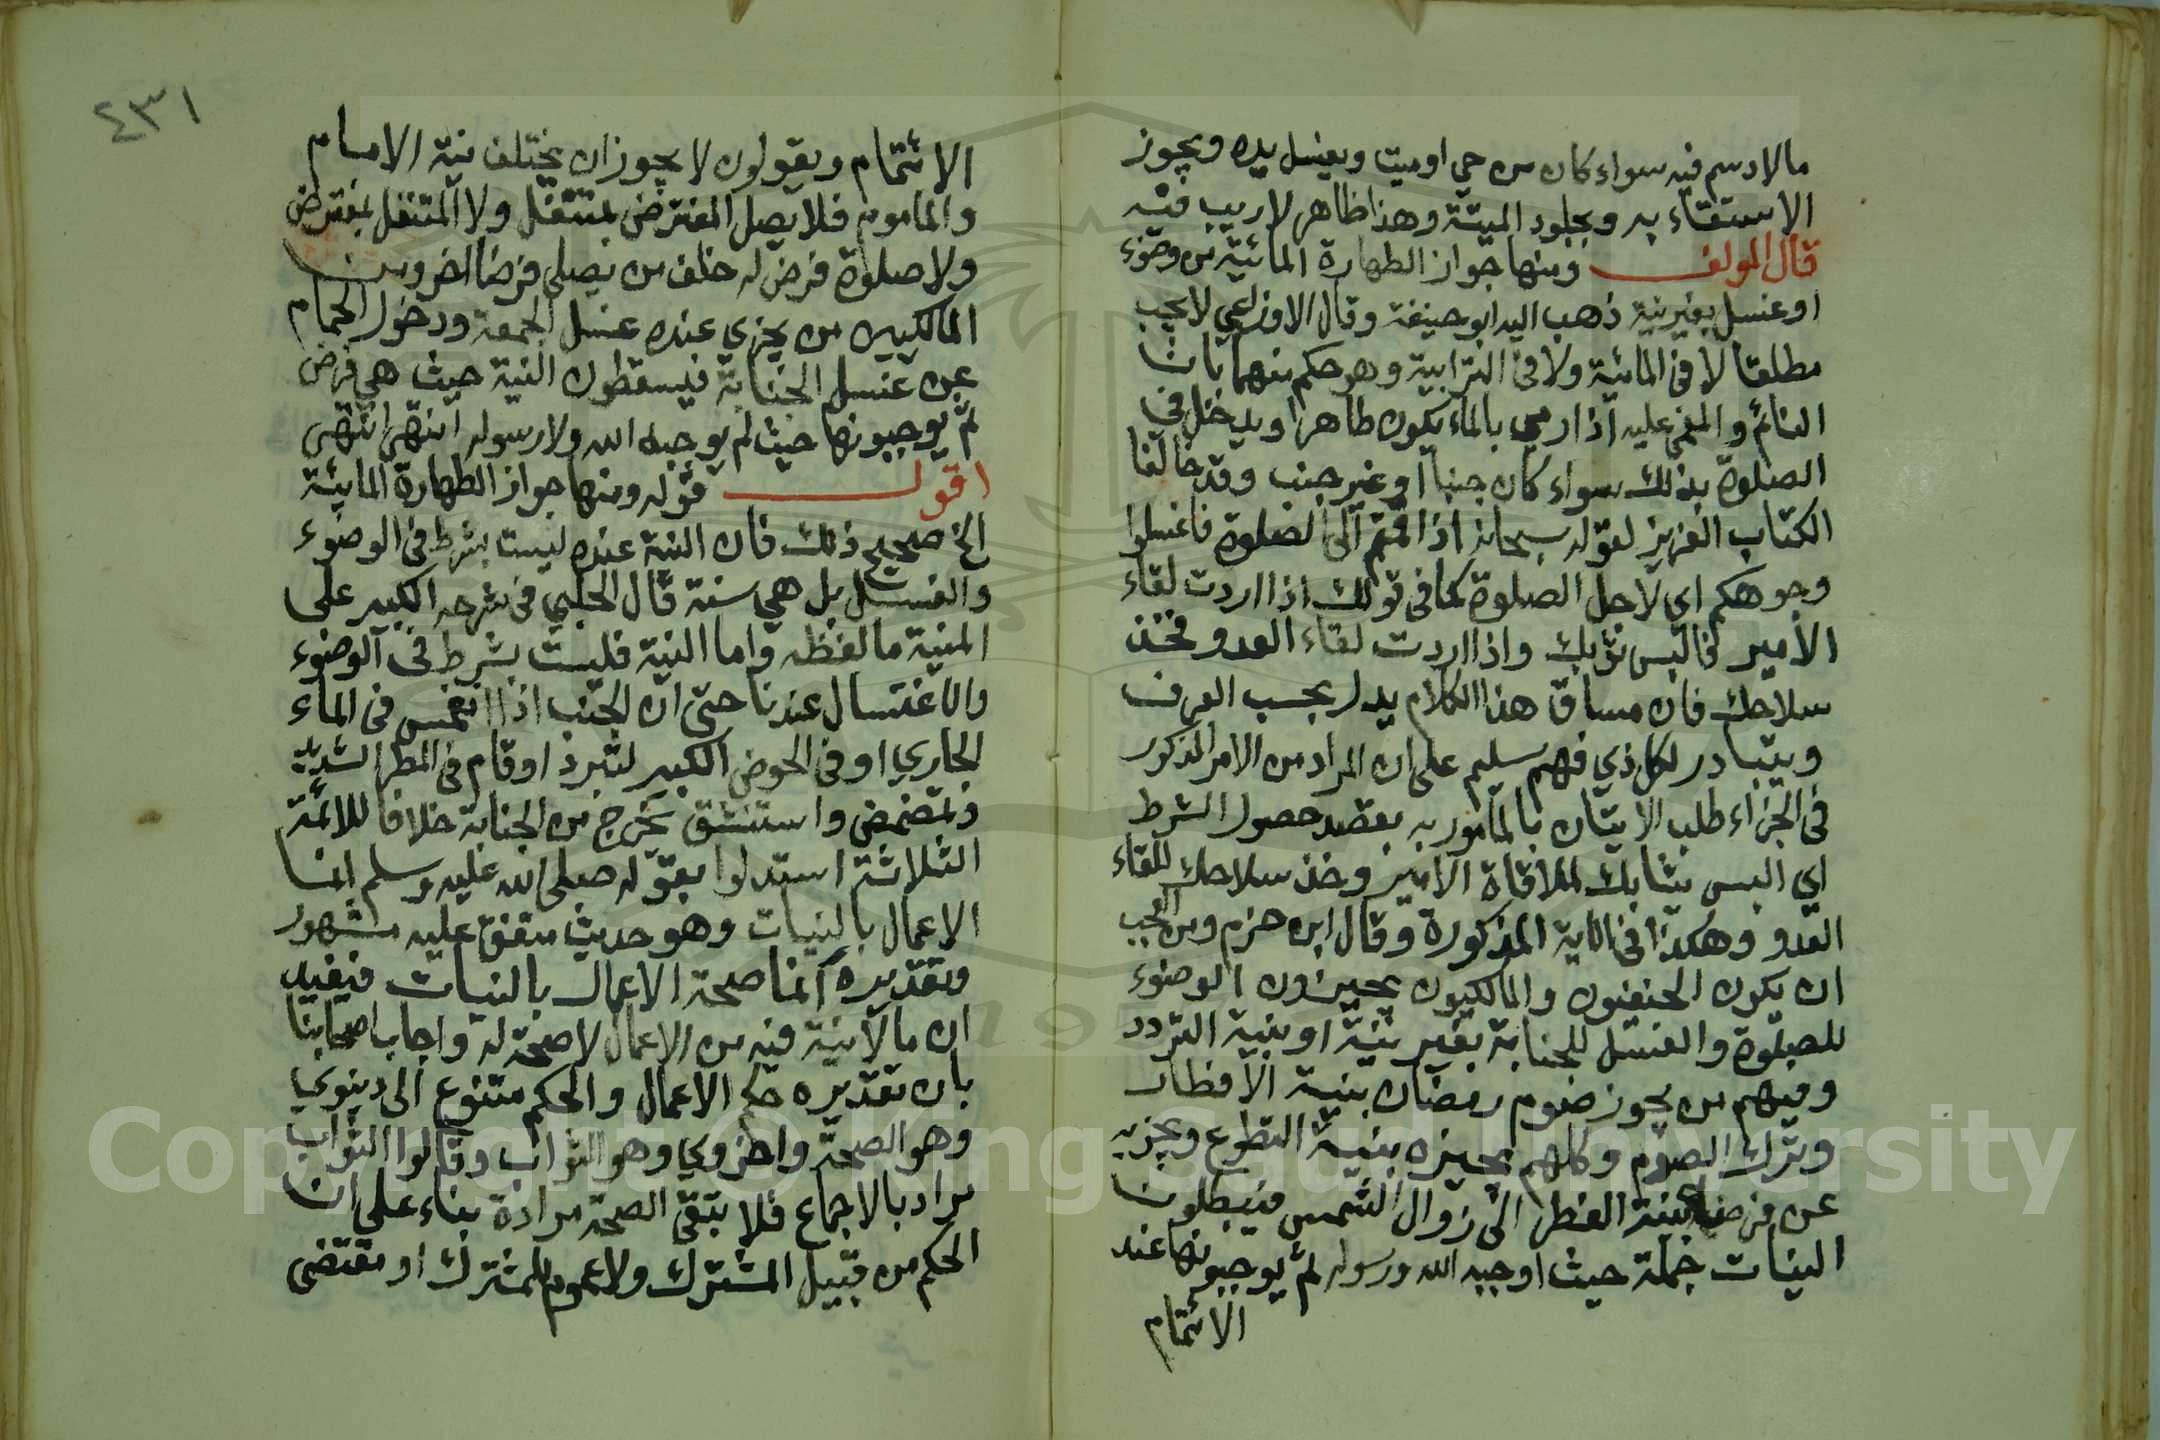 مالا دسم فيه سواء كان من حي او ميت ويغسل يده ويجوز
الاستقاء به وبجلود الميتة وهذا ظاهر لا ريب فيه
قال المولف ومنها جواز الطهارة المائية من وضوء
او غسل بغير نية ذهب اليه ابو حنيفة وقال الاوزاعي لا يجب
مطلقا لا في المائية ولا في الترابية وهو حكم منهما بان
النائم والمغمى عليه اذا رمي بالماء يكون طاهرا ويدخل في
الصلوة بذلك سواء كان جنبا او غير جنب وقد خالفا
الكتاب العزيز لقوله سبحانه اذا قمتم الى الصلوة فاغسلوا
وجوهكم اي لاجل الصلوة كما في قولك اذا اردت لقاء
الأمير فالبس ثوبك واذا اردت لقاء العدو فخذ
سلاحك فان مساق هذا الكلام يدل بحسب العرف
ويتبادر لكل ذي فهم سليم على ان المراد من الامر المذكور
في الجزاء طلب الاتيان بالمأمور به بقصد حصول الشرط
اي البس ثيابك لملاقاة الامير وخذ سلاحك للقاء
العدو وهكذا في الاية المذكورة وقال ابن حزم ومن العجب
ان يكون الحنفيون والمالكيون يجيزون الوضوء
للصلوة والغسل للجنابة بغير نية او بنية التردد
ومنهم من يجوز صوم رمضان بنية الافطار
وترك الصوم وكلهم يجيزه بنية التطوع ويجزيه
عن فرضه بنية الفطر الى زوال الشمس فيبطلون
النيات جملة حيث اوجبه الله ورسوله ثم يوجبونها عند
الائتمام
٤٣١
الائتمام ويقولون لا يجوز ان يختلف نية الامام
والماموم فلا يصل المفترض بمتنفل ولا المتنفل بمفترض
ولا صلوة فرض له خلف من يصلي فرضا اخر ومن
المالكيين من يجزي عنده غسل الجمعة ودخول الحمام
عن غسل الجنابة فيسقطون النية حيث هي فرض
ثم يوجبونها حيث لم يوجبه الله ولا رسوله انتهى انتهى
اقول قوله ومنها جواز الطهارة المائية
الخ صحيح ذلك فان النية عنده ليست بشرط في الوضوء
والغسل بل هي سنة قال الحلبي في شرحه الكبير على
المنية ما لفظه واما النية فليست بشرط في الوضوء
والاغتسال عندنا حتى ان الجنب اذا انغمس في الماء
الجاري او في الحوض الكبير لتبرد او قام في المطر الشديد
وتمضمض واستنشق يخرج من الجنابة خلافا للائمة
الثلاثة استدلوا بقوله صلى الله عليه وسلم انما
الاعمال بالنيات وهو حديث متفق عليه مشهور
وتقديره انما صحة الاعمال بالنيات فيفيد
ان ما لا نية فيه من الاعمال لا صحة له واجاب اصحابنا
بان تقديره حكم الاعمال والحكم متنوع الى دينوي
وهو الصحة واخروي وهو الثواب وقالوا الثواب
مراد بالاجماع فلا يتبقى الصحة مرادة بناء على ان
الحكم من قبيل المشترك ولا عموم للمشترك او مقتضى
Copyright © King Saud University